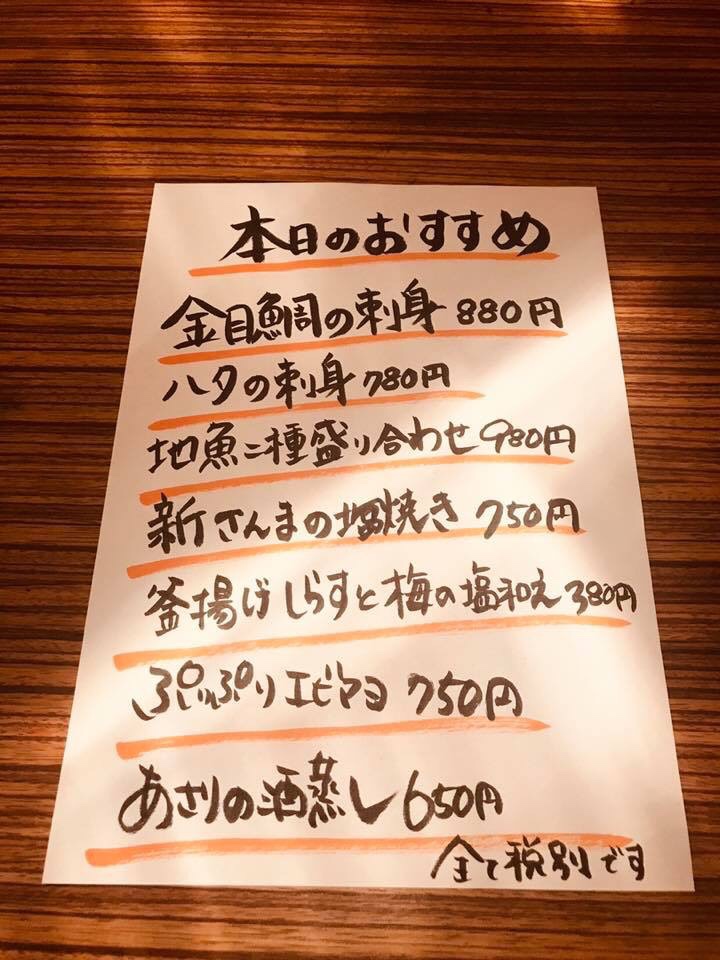 本日のおすすめ
金目鯛の刺身 880円
ハタの刺身 780円
地魚二種盛り合わせ 980円
新さんまの塩焼き 750円
釜揚げしらすと梅の塩和え 380円
ぷりぷりエビマヨ 750円
あさりの酒蒸し 650円
全て税別です